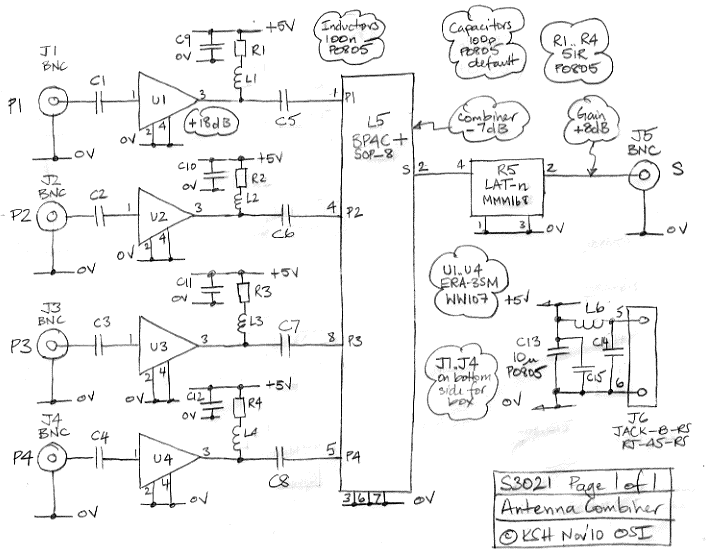 J1
BNC
P1
C1
1
U1
3
2 4
0V
+18dB
C9
0V
+5V
R1
L1
C5
0V
Inductors
100n
P0805
Capacitors
100p
P0805
default
R1..R4
51R
P0805
1 P1
L5
BPAC+
SOP-8
Combiner
-7dB
Gain
+8dB
J5
BNC
S
S 2
4
R5
LAT-n
MMM168
2
1 3
0V
0V
J2
BNC
P2
C2
1
U2
3
2 4
0V
C10
0V
+5V
R2
L2
C6
4 P2
0V
U1..U4
ERA-3SM
WW107
J3
BNC
P3
C3
1
U3
3
2 4
0V
C11
0V
+5V
R3
L3
C7
8 P3
0V
+5V
L6
5
C13
10u
P0805
C14
C15
6
0V
J6
JACK-B-RS
RJ-45-RS
J1..J4
on bottom
side for
box
J4
BNC
P4
C4
1
U4
3
2 4
0V
C12
0V
+5V
R4
L4
C8
5 P4
0V
3 6 7
0V
S3021 Page 1 of 1
Antenna Combiner
© KSH Nov'10 OSI